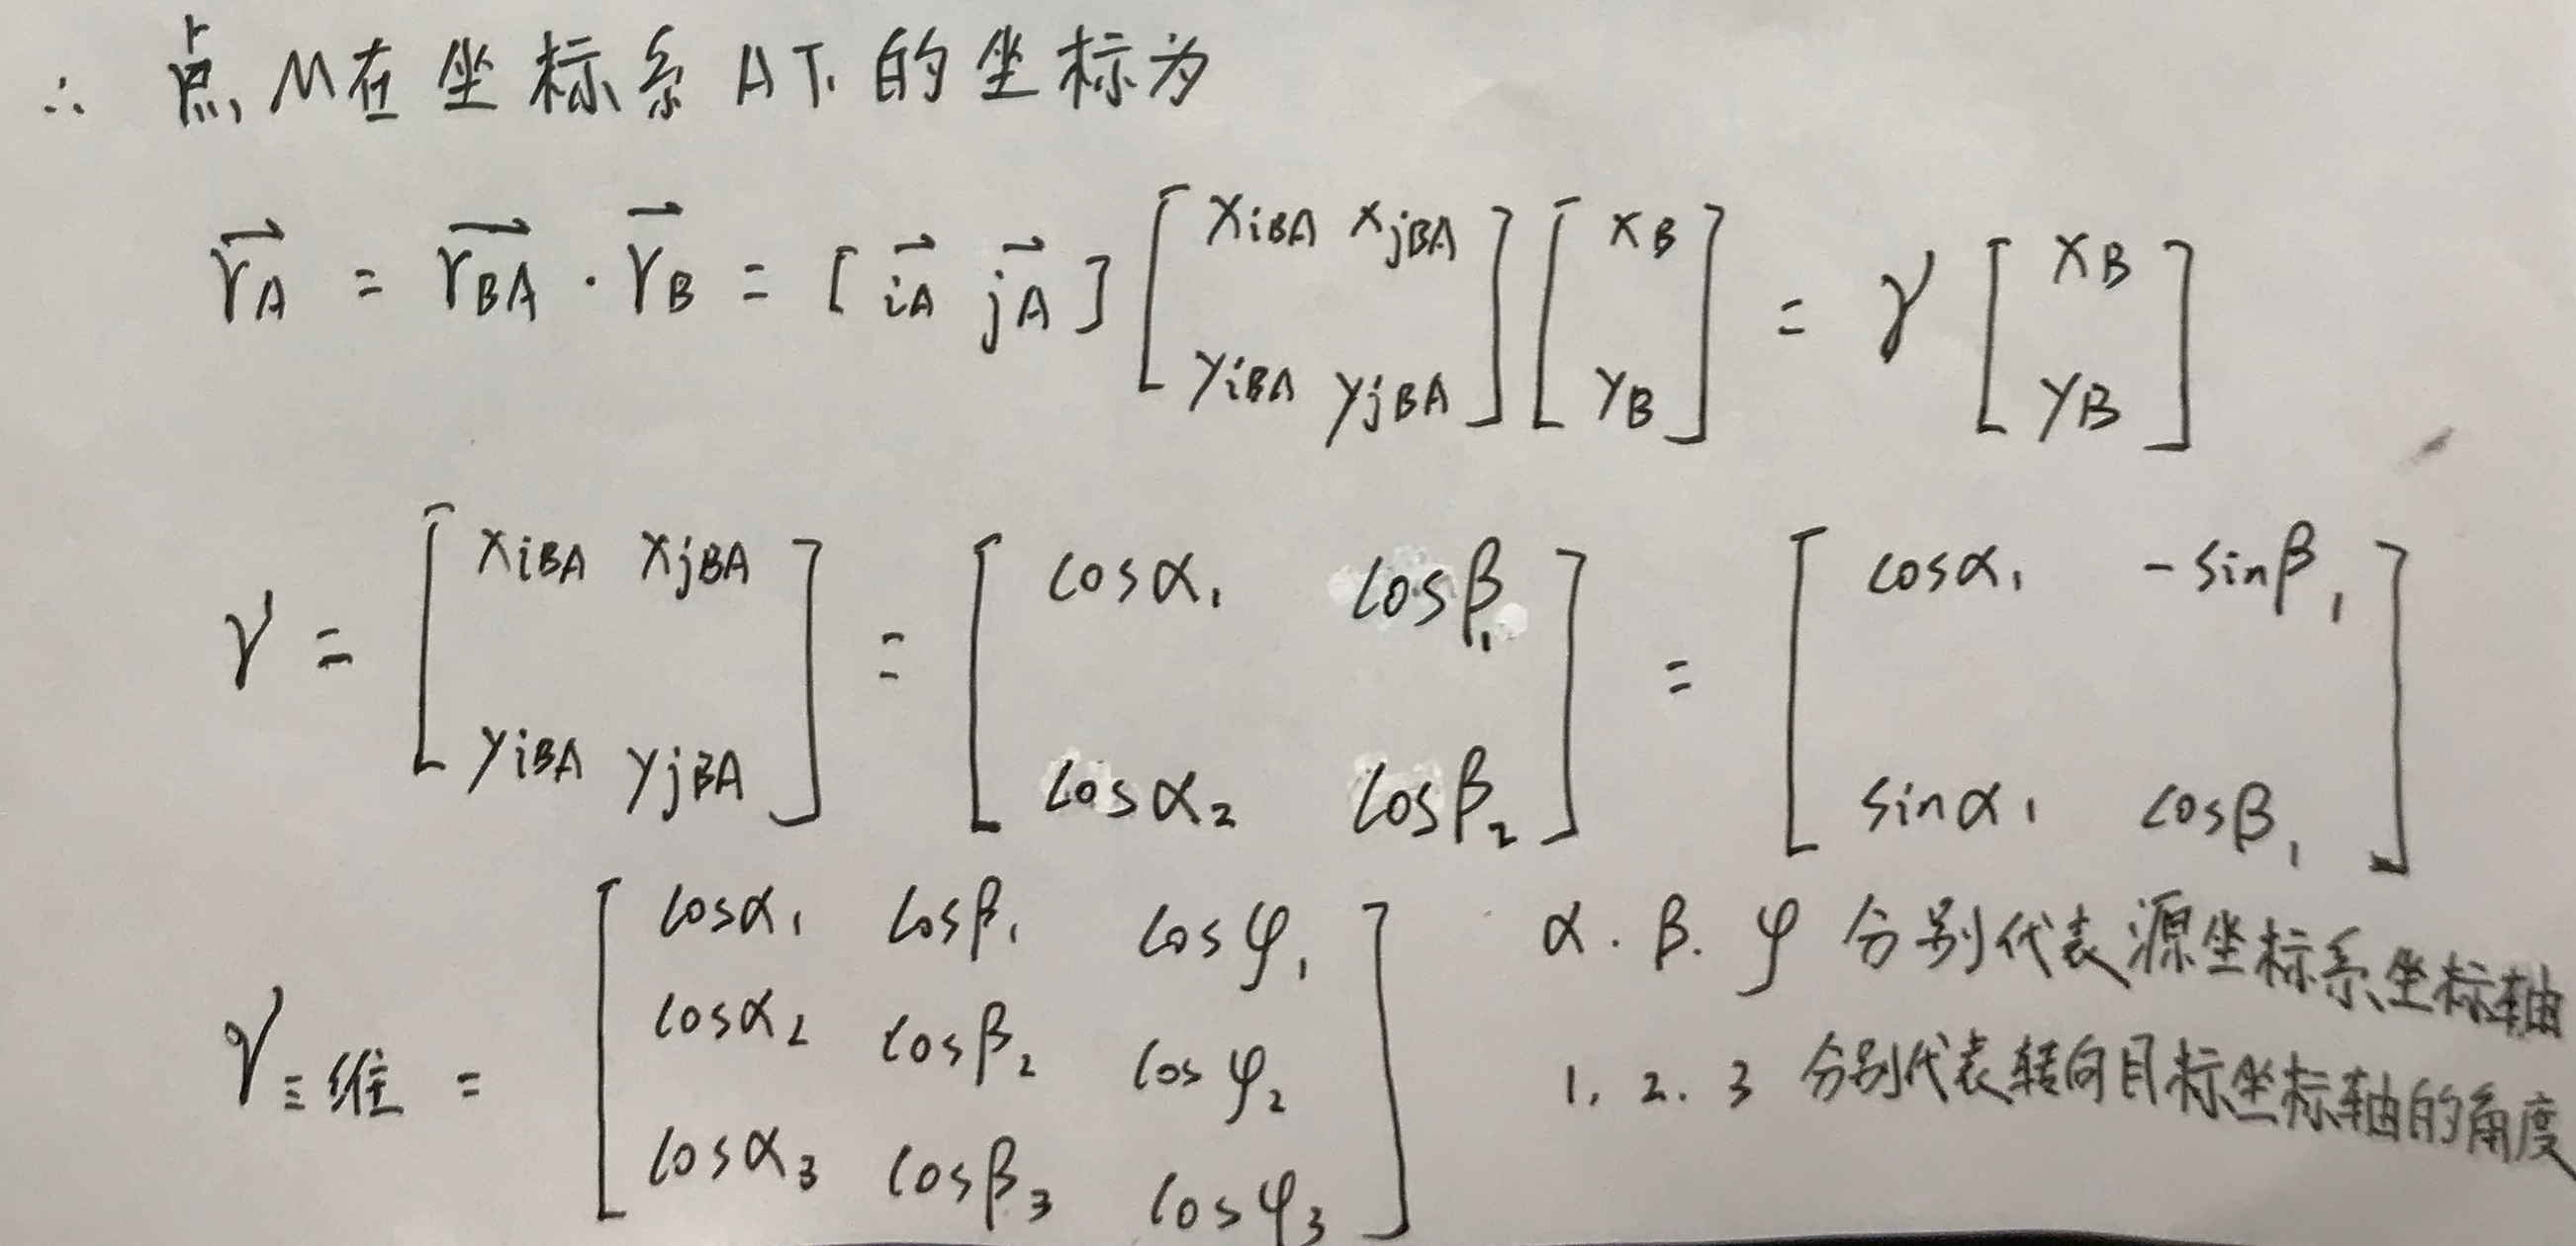 ∴ 点M在坐标系A下的坐标为
$\overrightarrow{r_A} = \overrightarrow{r_{BA}} \cdot \overrightarrow{r_B} = [\overrightarrow{i_A} \ \overrightarrow{j_A}] \begin{bmatrix} x_{iBA} & x_{jBA} \\ y_{iBA} & y_{jBA} \end{bmatrix} \begin{bmatrix} x_B \\ y_B \end{bmatrix} = \gamma \begin{bmatrix} x_B \\ y_B \end{bmatrix}$
$\gamma = \begin{bmatrix} x_{iBA} & x_{jBA} \\ y_{iBA} & y_{jBA} \end{bmatrix} = \begin{bmatrix} \cos\alpha_1 & \cos\beta_1 \\ \cos\alpha_2 & \cos\beta_2 \end{bmatrix} = \begin{bmatrix} \cos\alpha_1 & -\sin\beta_1 \\ \sin\alpha_1 & \cos\beta_1 \end{bmatrix}$
$\gamma_{三维} = \begin{bmatrix} \cos\alpha_1 & \cos\beta_1 & \cos\varphi_1 \\ \cos\alpha_2 & \cos\beta_2 & \cos\varphi_2 \\ \cos\alpha_3 & \cos\beta_3 & \cos\varphi_3 \end{bmatrix}$
α. β. φ 分别代表源坐标系坐标轴
1. 2. 3 分别代表转向目标坐标轴的角度